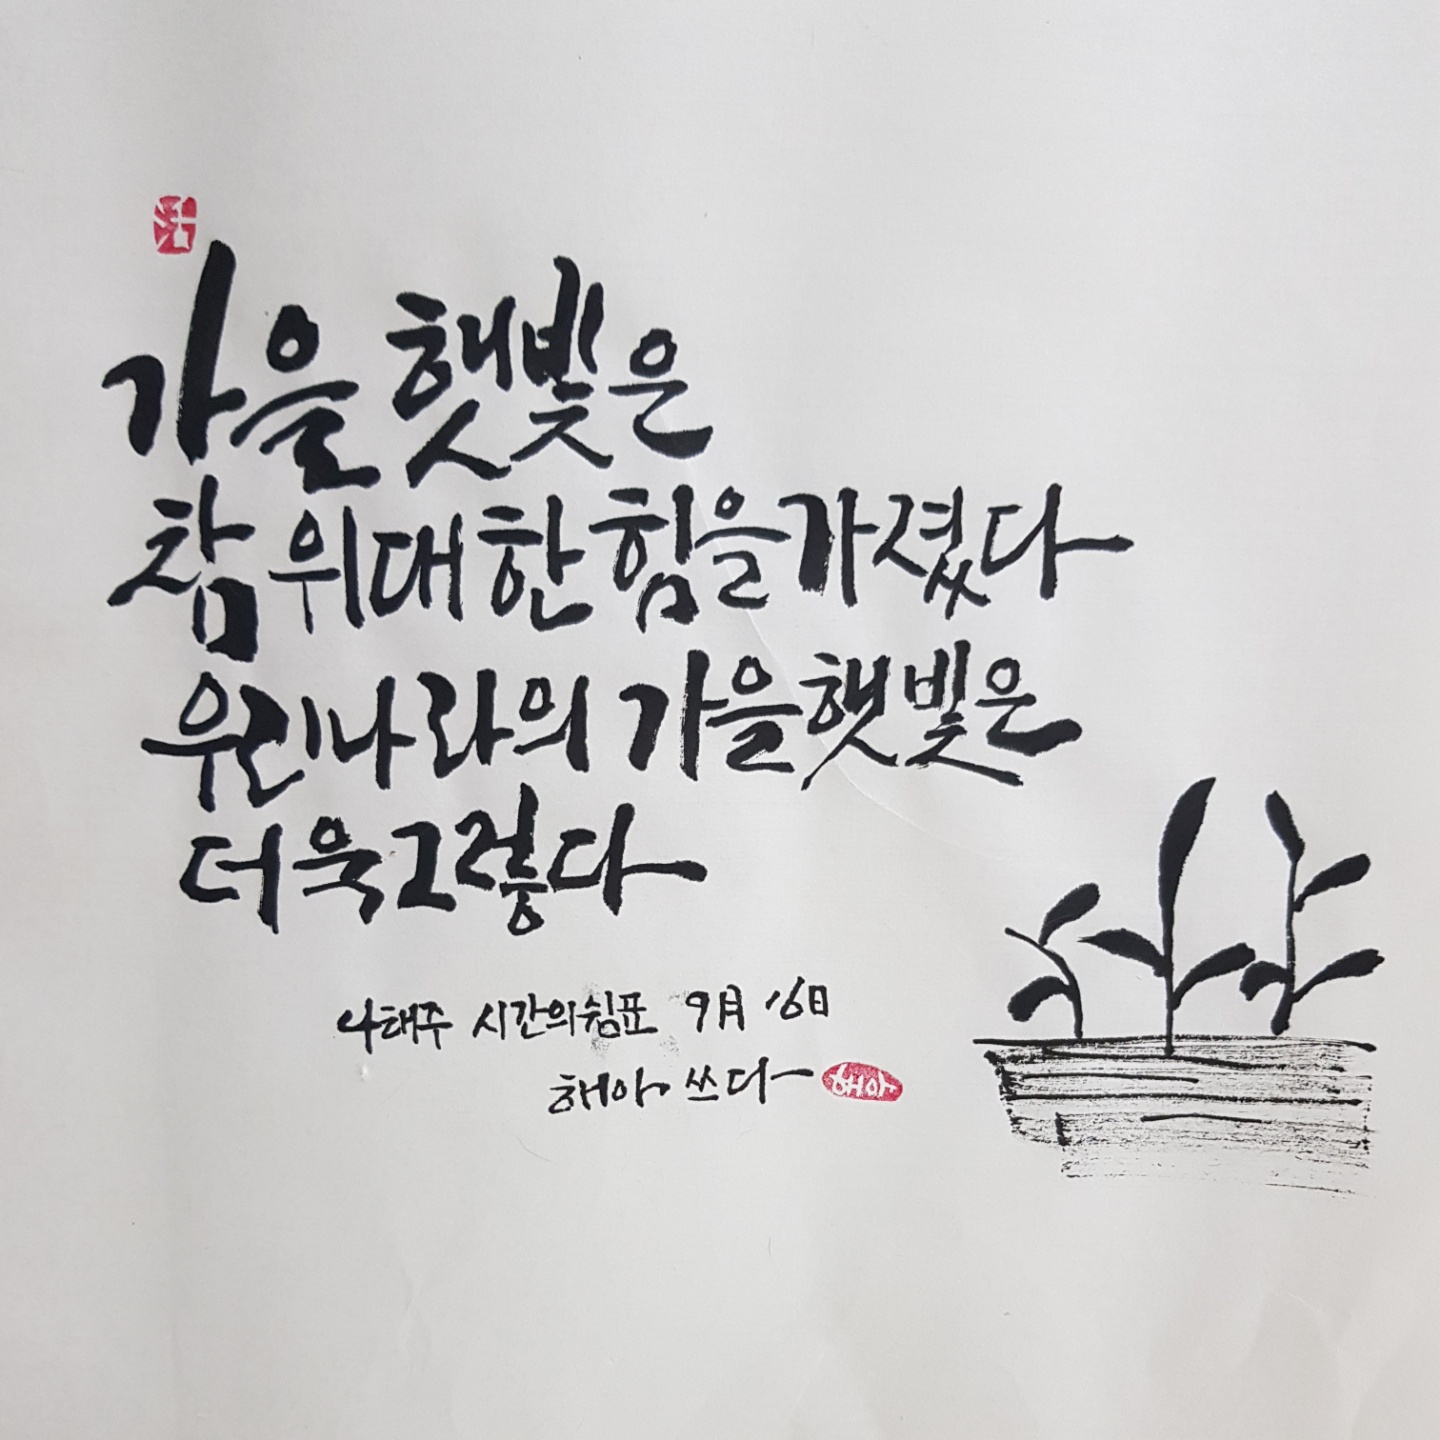 가을 햇빛은
참 위대한 힘을 가졌다
우리나라의 가을 햇빛은
더욱 그렇다
나태주 시간의 쉼표 9月 16日
해아 쓰다
해아